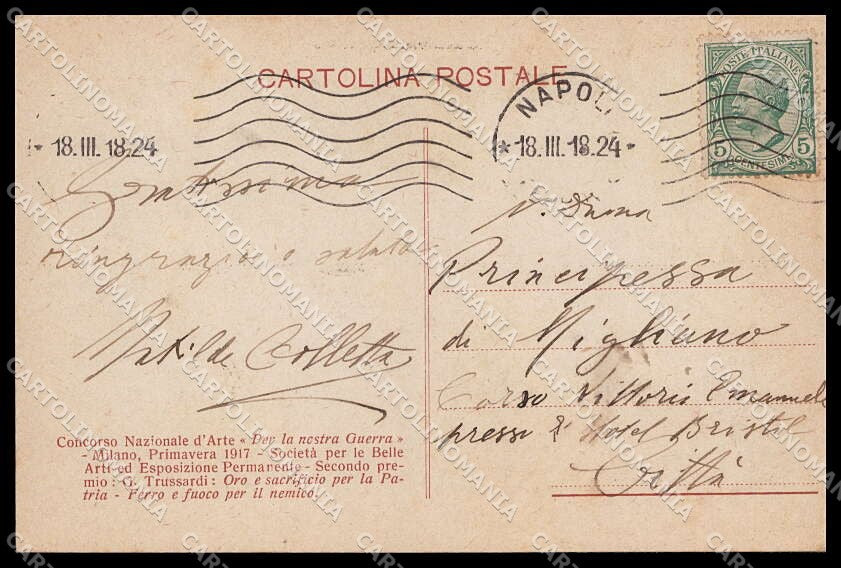 CARTOLINA POSTALE
NAPOLI
* 18.III.18.24 *
* 18.III.18.24 *
POSTE ITALIANE
5 5
CENTESIMI
Gratissima
ringrazio e saluto
Matilde Colletta
N. Donna
Principessa
di Migliano
Corso Vittorio Emanuele
presso l' Hotel Bristol
Città
Concorso Nazionale d'Arte « Per la nostra Guerra »
- Milano, Primavera 1917 - Società per le Belle
Arti ed Esposizione Permanente - Secondo pre-
mio : G. Trussardi : Oro e sacrificio per la Pa-
tria - Ferro e fuoco per il nemico.
CARTOLINOMANIA